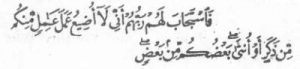 فَاسْتَجَابَ لَهُمْ رَبُّهُمْ أَنِّي لَا أُضِيعُ عَمَلَ عَامِلٍ مِّنكُم
مِّن ذَكَرٍ أَوْ أُنثَىٰ بَعْضُكُم مِّن بَعْضٍ